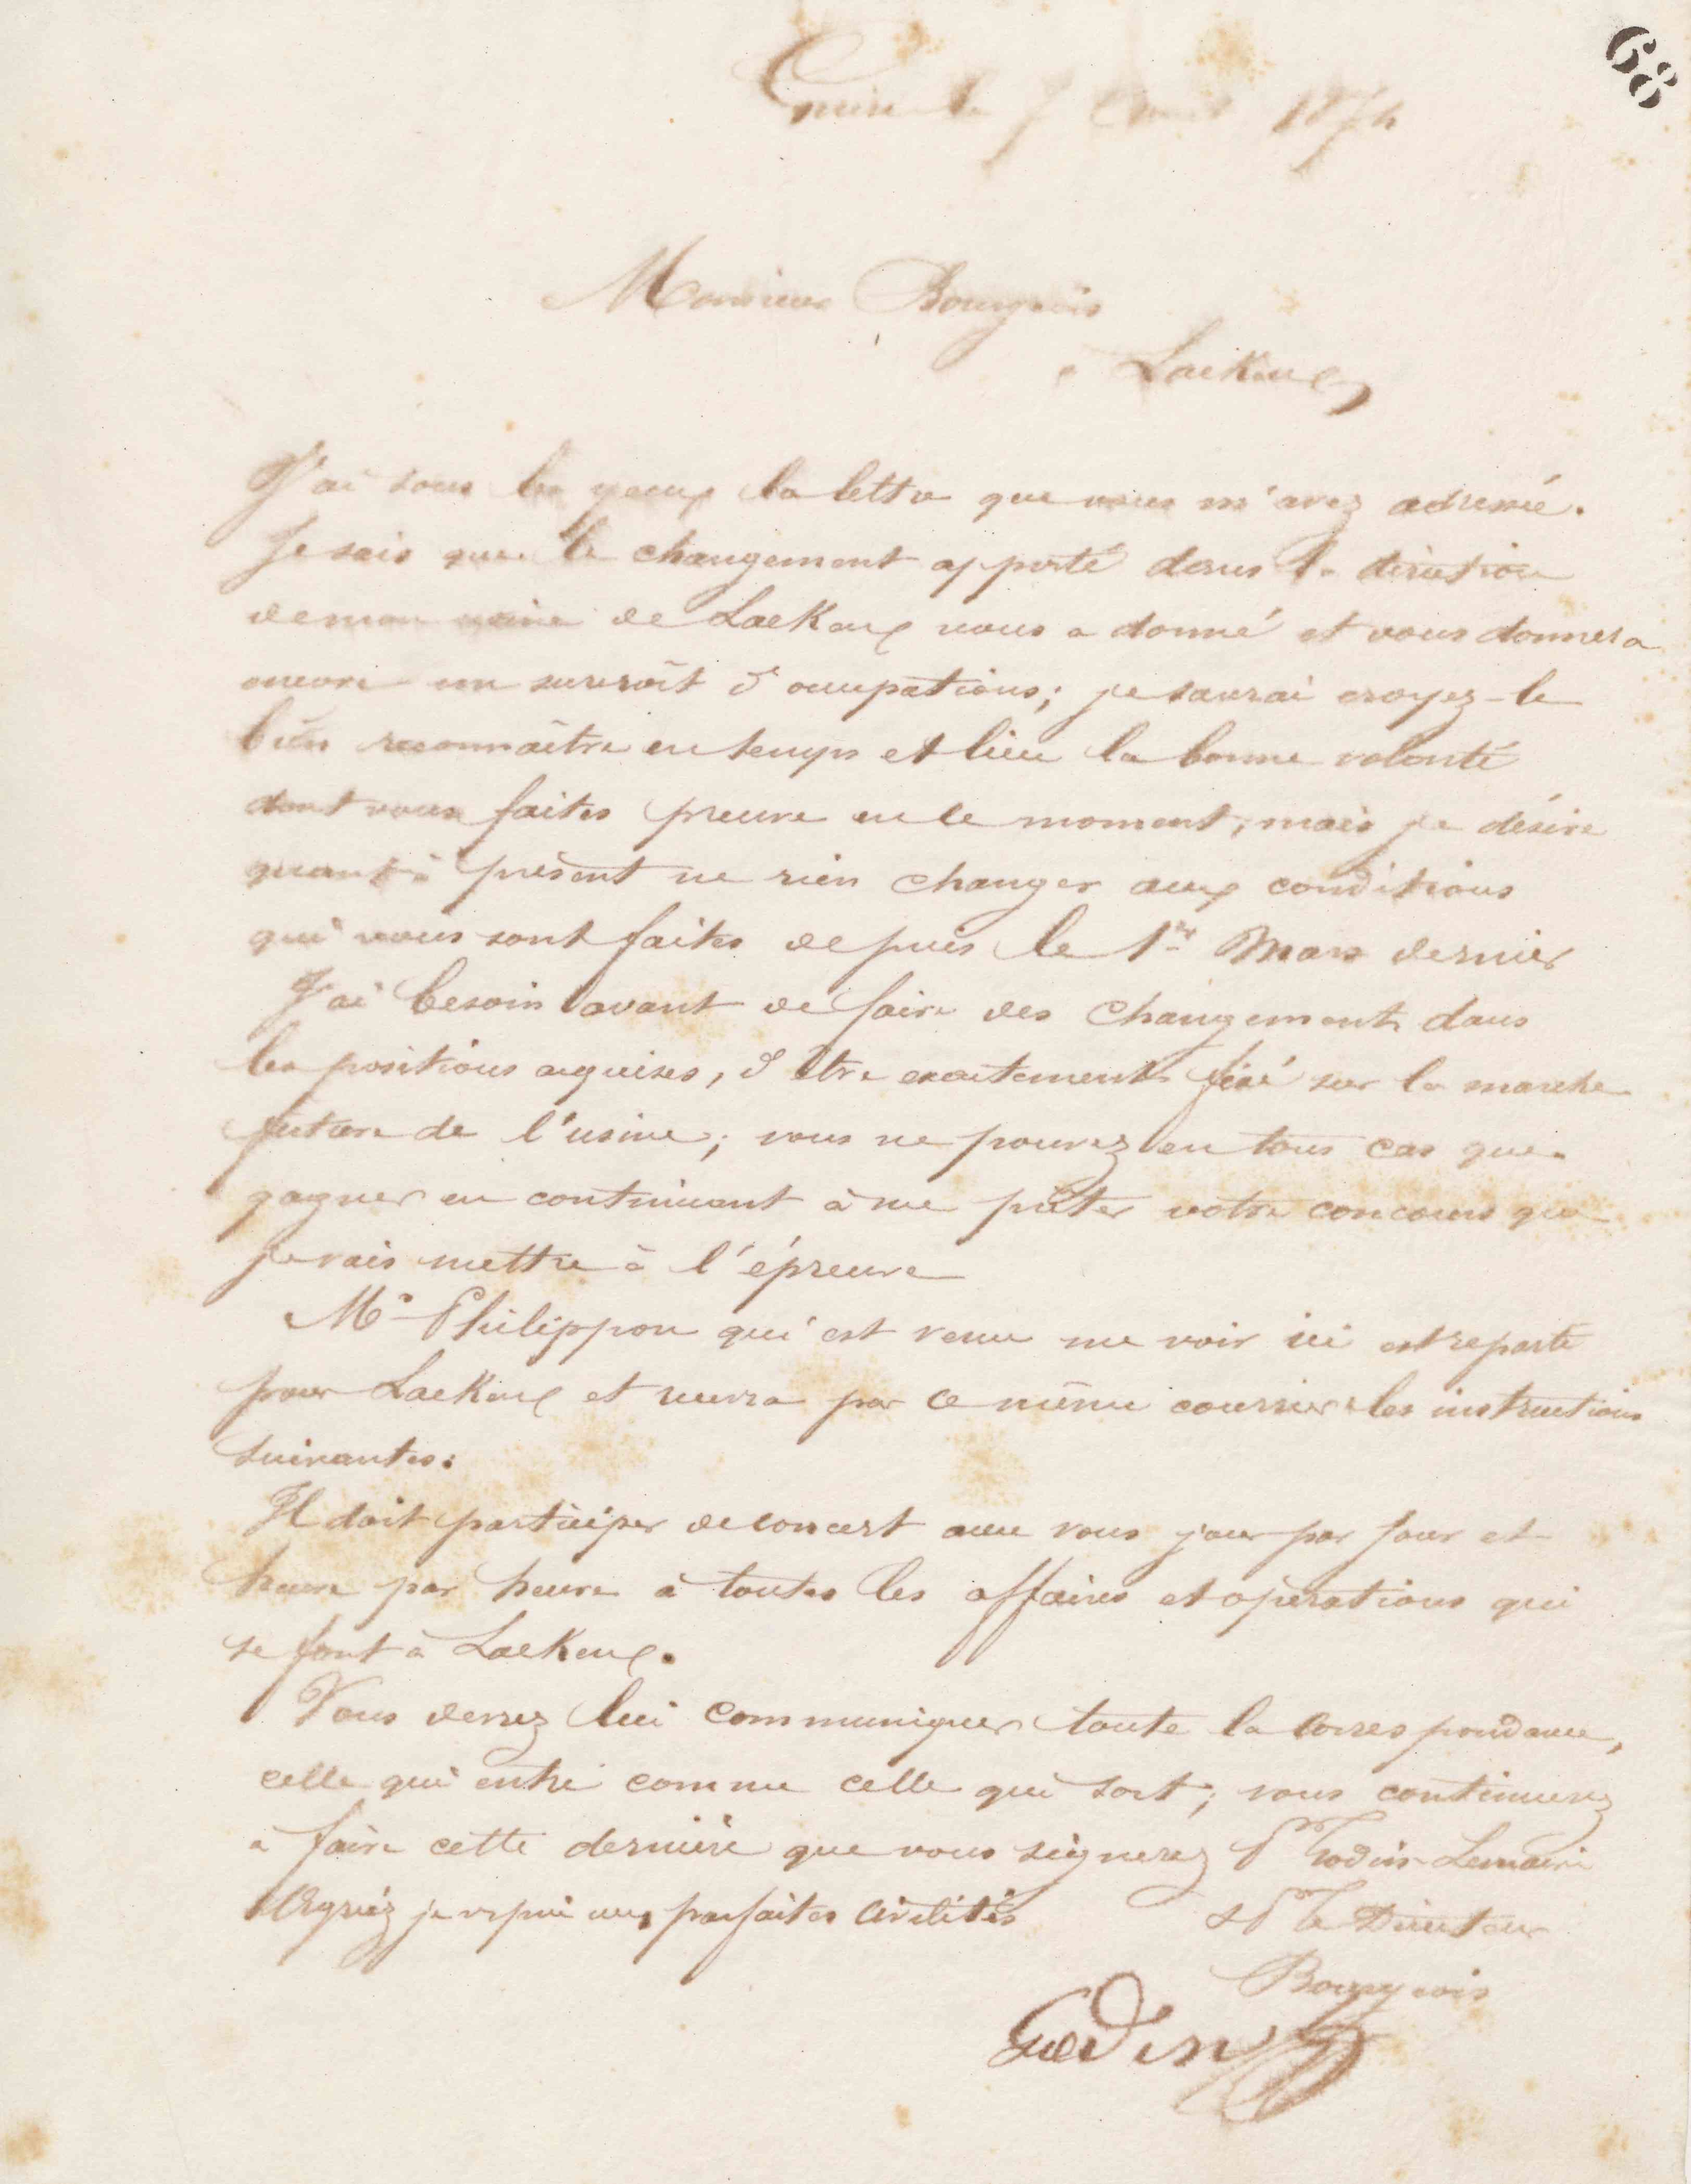 68
Guise le 7 Avril 1874
Monsieur Bourgeois
à Laeken
J'ai sous les yeux la lettre que vous m'avez adressée.
Je sais que le changement apporté dans la direction
de mon usine de Laeken vous a donné et vous donnera
encore un surcroît d'occupations; je saurai croyez-le
bien reconnaître en temps et lieu la bonne volonté
dont vous faites preuve en ce moment, mais je désire
quant à présent ne rien changer aux conditions
qui vous sont faites depuis le 1er Mars dernier
J'ai besoin avant de faire des changements dans
les positions acquises, d'être exactement fixé sur la marche
future de l'usine; vous ne pouvez en tous cas que
gagner en continuant à me prêter votre concours que
je vais mettre à l'épreuve
Mr Philippon qui est venu me voir ici est reparti
pour Laeken et recevra par ce même courrier les instructions
suivantes:
Il doit participer de concert avec vous jour par jour et
heure par heure à toutes les affaires et opérations qui
se font à Laeken.
Vous devrez lui communiquer toute la correspondance,
celle qui entre comme celle qui sort; vous continuerez
à faire cette dernière que vous signerez Pr Godin-Lemaire
Agréez je vs prie mes parfaites civilités
et Pr le Directeur
Bourgeois
Godin